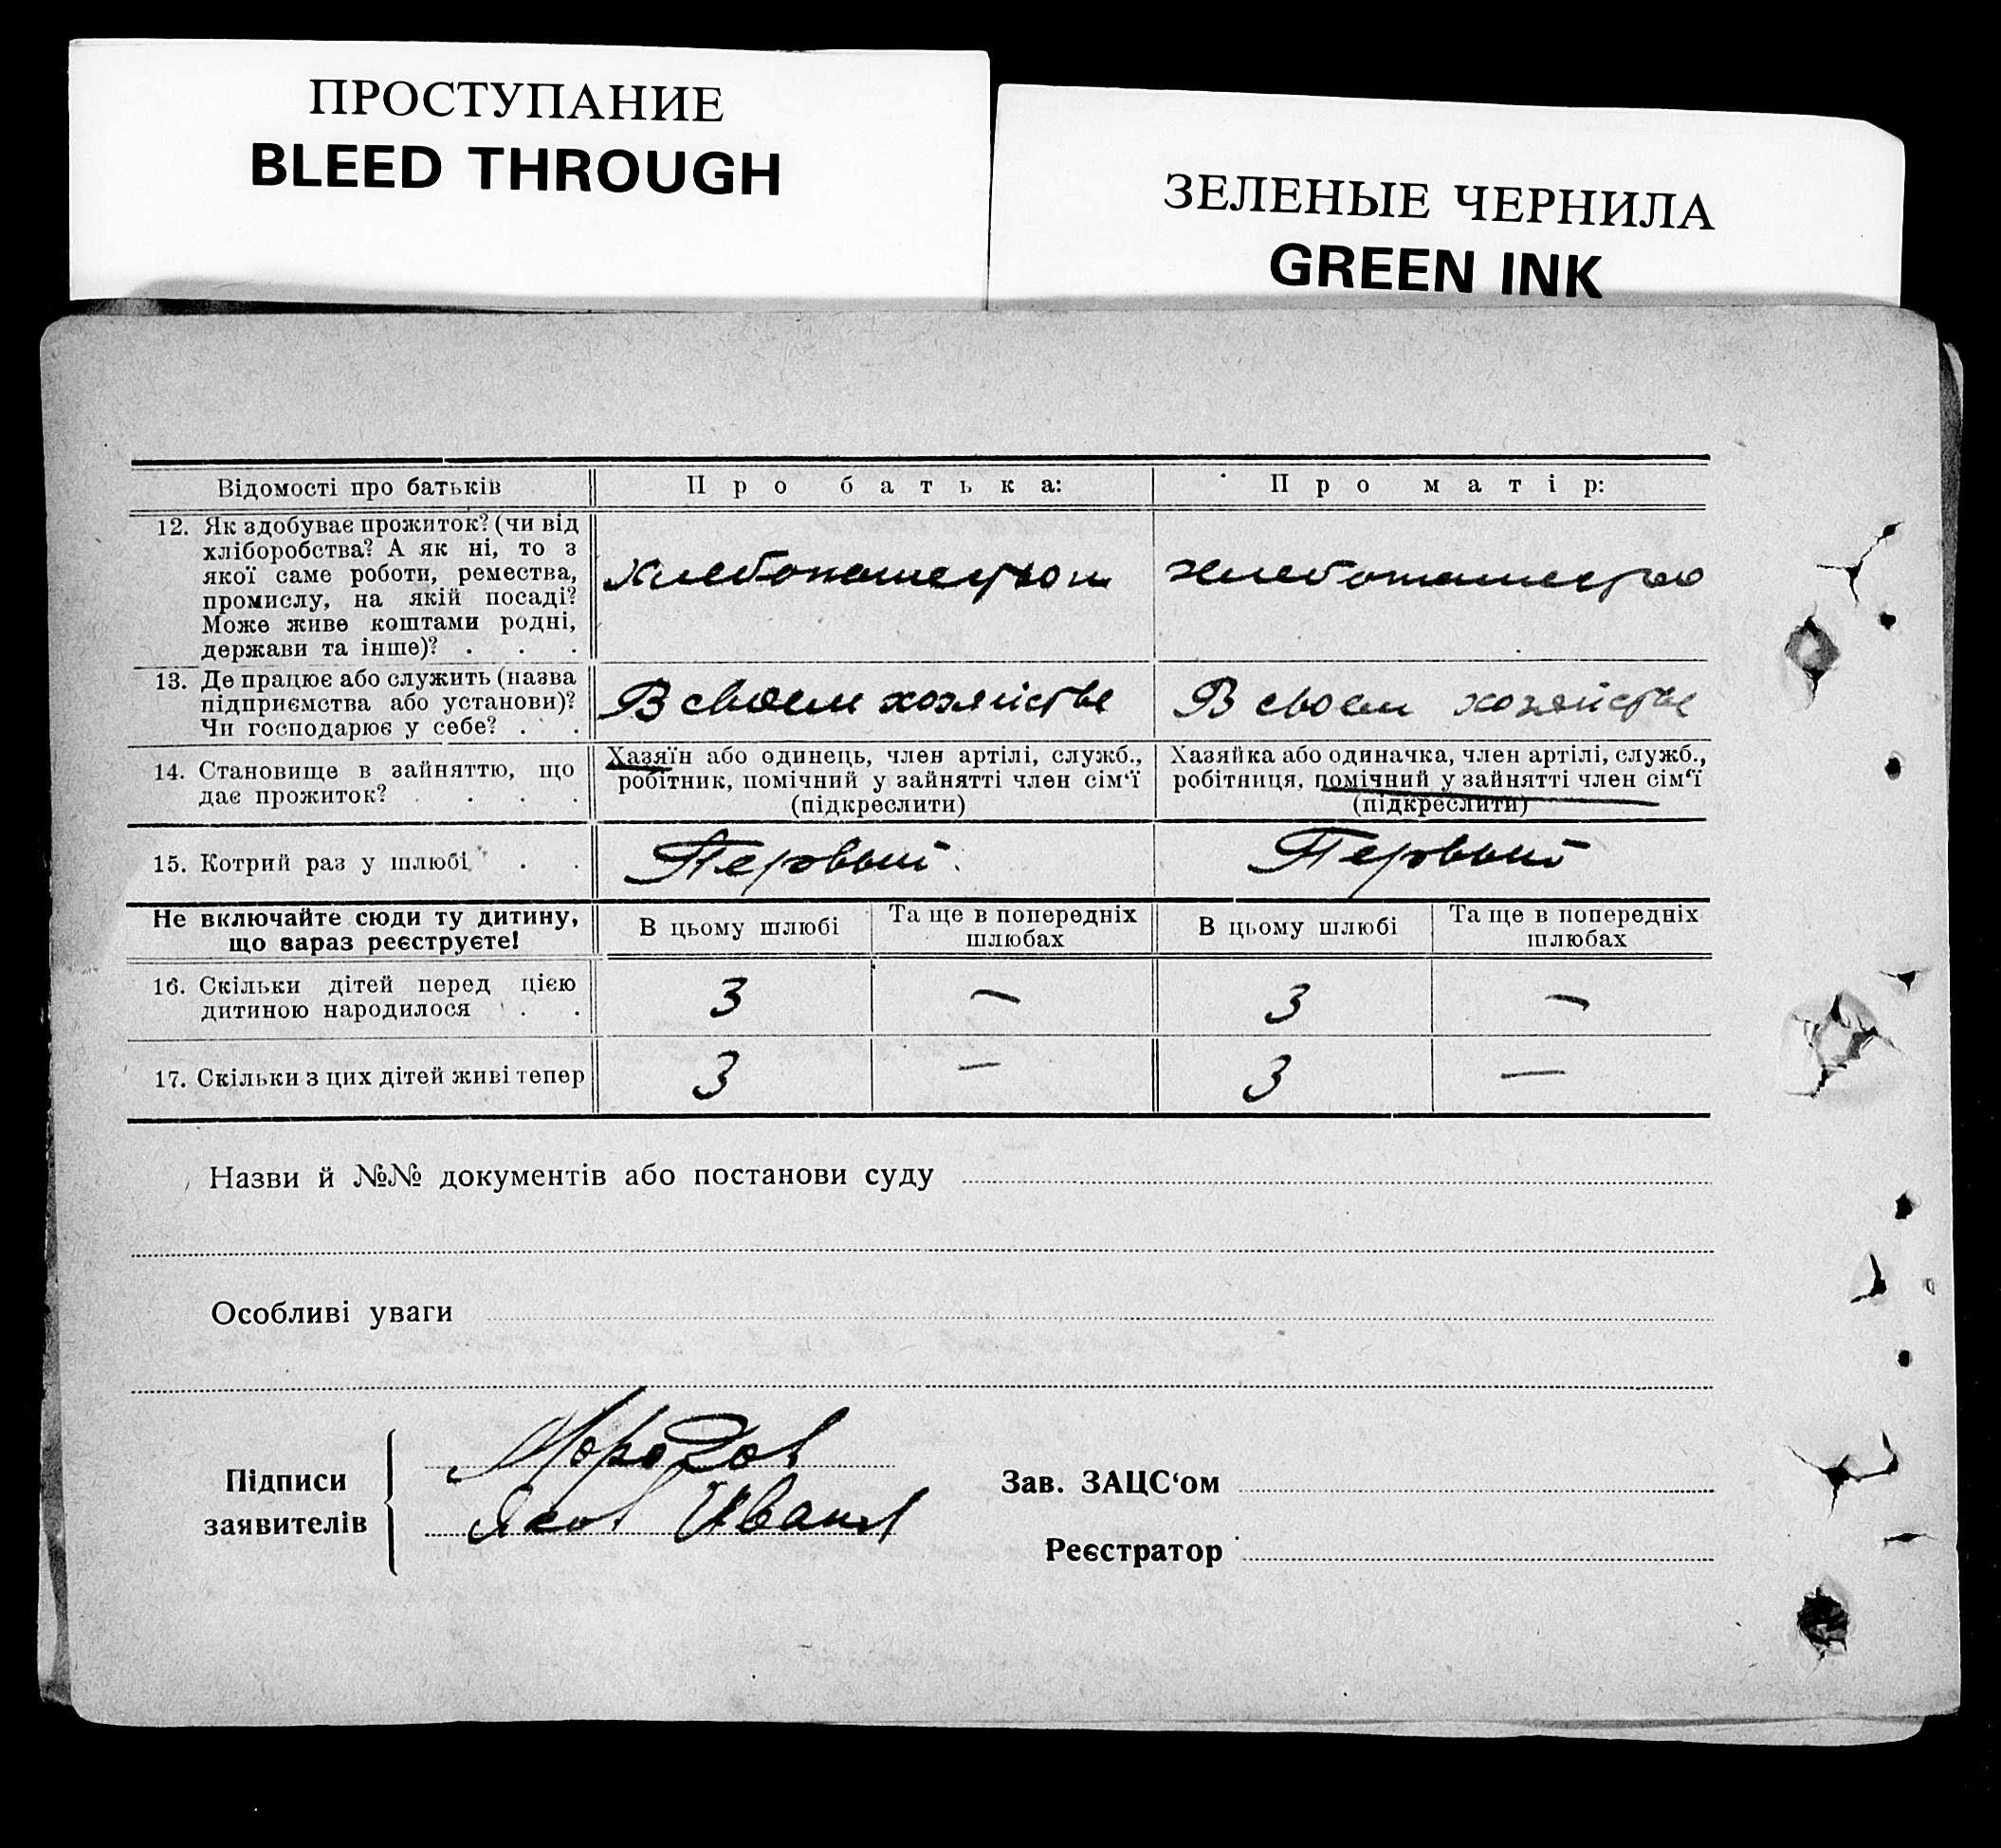 ПРОСТУПАНИЕ
BLEED THROUGH
ЗЕЛЕНЫЕ ЧЕРНИЛА
GREEN INK
Відомості про батьків
Про батька:
Про матір:
12. Як здобуває прожиток? (чи від
хліборобства? А як ні, то з
якої саме роботи, ремества,
промислу, на якій посаді?
Може живе коштами родні,
держави та інше)? . . .
хлебопашеством
хлебопашество
13. Де працює або служить (назва
підприємства або установи)?
Чи господарює у себе? . .
В своем хозяйстве
В своем хозяйстве
14. Становище в зайняттю, що
дає прожиток? . . . .
Хазяїн або одинець, член артілі, служб.,
робітник, помічний у зайнятті член сім‘ї
(підкреслити)
Хазяйка або одиначка, член артілі, служб.,
робітниця, помічний у зайнятті член сім‘ї
(підкреслити)
15. Котрий раз у шлюбі . .
Первый
Первый
Не включайте сюди ту дитину,
що вараз реєструєте!
В цьому шлюбі
Та ще в попередніх
шлюбах
В цьому шлюбі
Та ще в попередніх
шлюбах
16. Скільки дітей перед цією
дитиною народилося . .
3
—
3
—
17. Скільки з цих дітей живі тепер
3
—
3
—
Назви й №№ документів або постанови суду
Особливі уваги
Підписи
заявителів
Морозов
Яков Иванов
Зав. ЗАЦС‘ом
Реєстратор